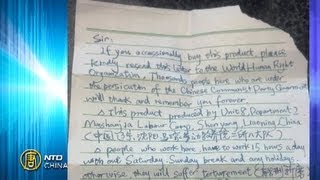 Sir:
If you occassionally buy this product, please
kindly resend this letter to the World Human Right
Organization. Thousands people here who are under
the persicution of the Chinese Communist Party Government
will thank and remember you forever.
This product produced by Unit 8, Department 2
Mashanjia Labour Camp, Shenyang, Liaoning, China
(中国,辽宁,沈阳,
people who work here have to work 15 hours a day
with out Saturday, Sunday break and any holidays,
otherwise, they will suffer torturement
NTD
CHINA